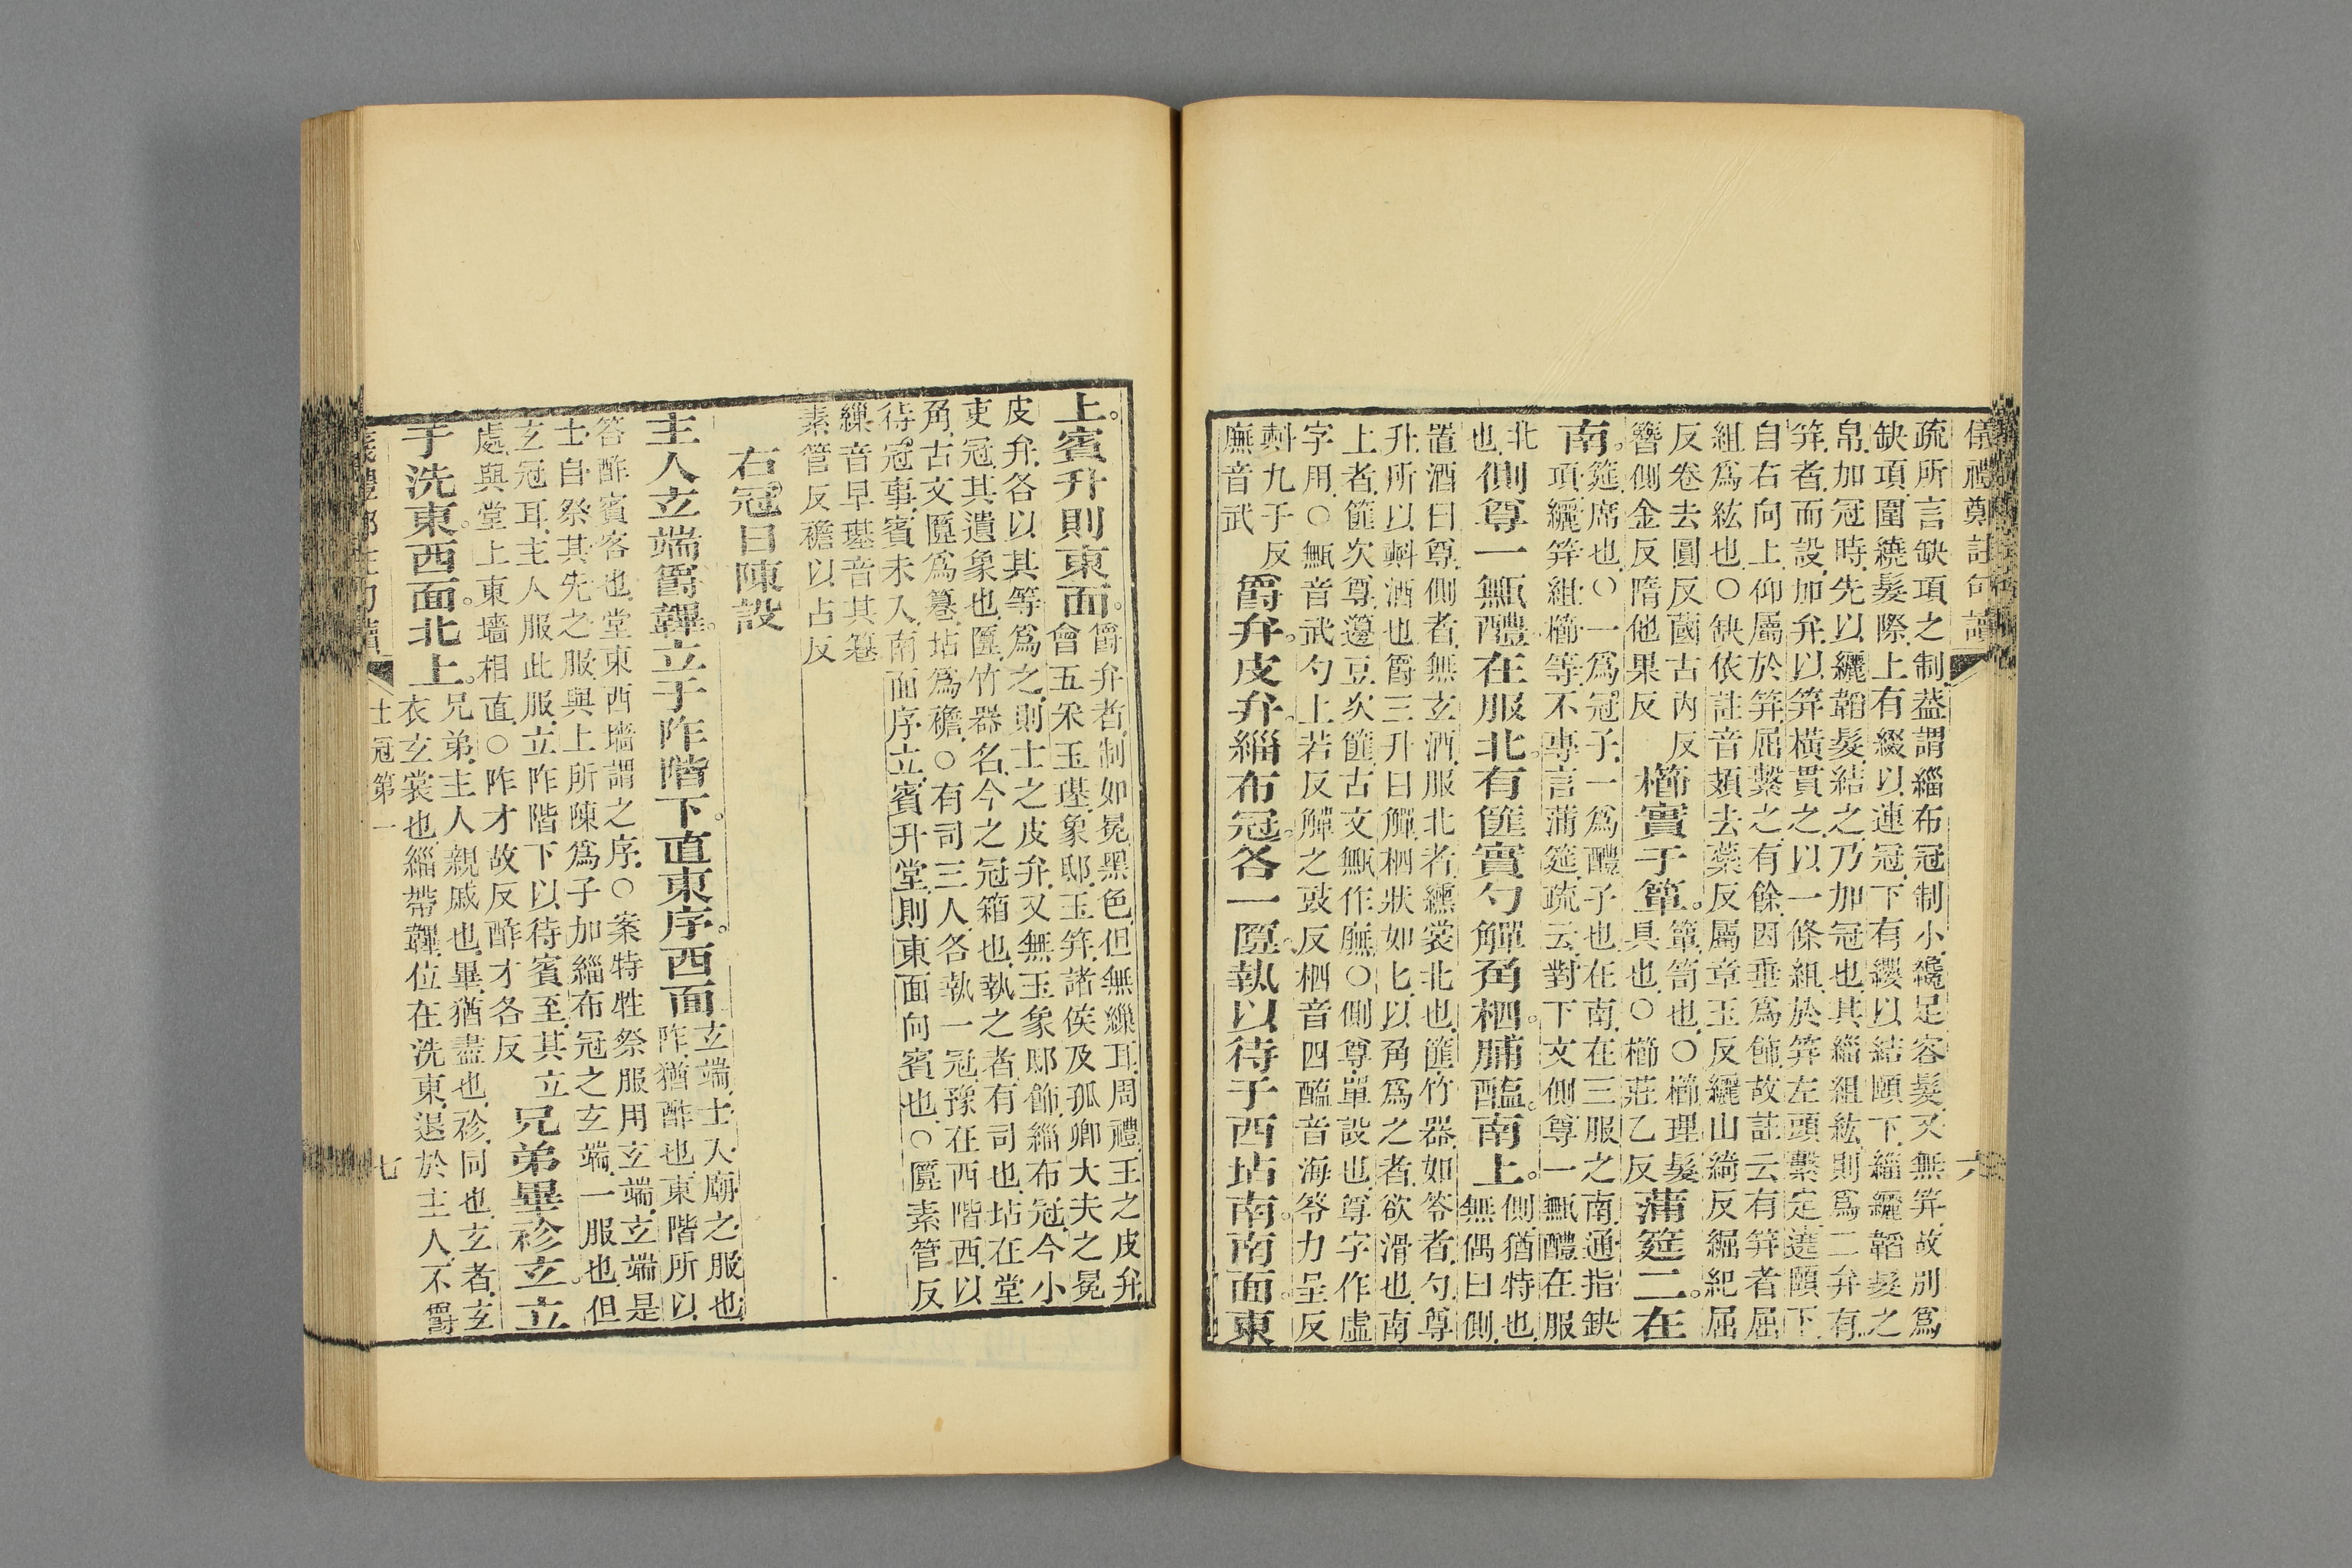 儀禮鄭註句讀　六
疏所言缺項之制葢謂緇布冠制小纔足容髮又無笄故别爲
缺項圍繞髮際上有綴以連冠下有纓以結頤下緇纚韜髮之
帛加冠時先以纚韜髮結之乃加冠也其緇組紘則爲二弁有
笄者而設加弁以笄橫貫之以一條組於笄左頭繫定遶頤下
自右向上仰屬於笄屈繫之有餘因垂爲飾故註云有笄者屈
組爲紘也○缺依註音頍去蘂反屬章玉反纚山綺反紀屈
反卷去圓反蔮古内反
簪側金反隋他果反
櫛實于簞。
簞笥也○櫛理髮
具也○櫛莊乙反
蒲筵二。在
南。
筵席也○一爲冠子一爲醴子也在南在三服之南通指缺
項纚笄組櫛等不專言蒲筵疏云對下文側尊一甒醴在服
北
也
側尊一甒醴在服北。有篚實勺觶角柶。脯醢。南上。
側猶特也
無偶曰側
置酒曰尊側者無玄酒服北者纁裳北也篚竹器如笭者勺尊
升所以㪺酒也爵三升曰觶柶狀如匕以角爲之者欲滑也南
上者篚次尊籩豆次篚古文甒作廡○側尊單設也尊字作虛
字用○甒音武勺上若反觶之豉反柶音四醢音海笭力呈反
㪺九于反
廡音武
爵弁。皮弁。緇布冠。各一匴。執以待于西坫南。南面。東
上。賓升則東面。
爵弁者制如冕黑色但無繅耳周禮王之皮弁
會五采玉璂象邸玉笄諸侯及孤卿大夫之冕
皮弁各以其等爲之則士之皮弁又無玉象邸飾緇布冠今小
吏冠其遺象也匴竹器名今之冠箱也執之者有司也坫在堂
角古文匴爲篹坫爲襜○有司三人各執一冠豫在西階西以
待冠事賓未入南面序立賓升堂則東面向賓也○匴素管反
繅音早璂音其篹
素管反襜以占反
右冠日陳設
主人玄端爵韠。立于阼階下。直東序。西面
玄端士入廟之服也
阼猶酢也東階所以
答酢賓客也堂東西墻謂之序○案特牲祭服用玄端玄端是
士自祭其先之服與上所陳爲子加緇布冠之玄端一服也但
玄冠耳主人服此服立阼階下以待賓至其立
處與堂上東墻相直○阼才故反酢才各反
兄弟畢袗玄。立
于洗東。西面。北上。
兄弟主人親戚也畢猶盡也袗同也玄者玄
衣玄裳也緇帶韠位在洗東退於主人不爵
士冠第一　七